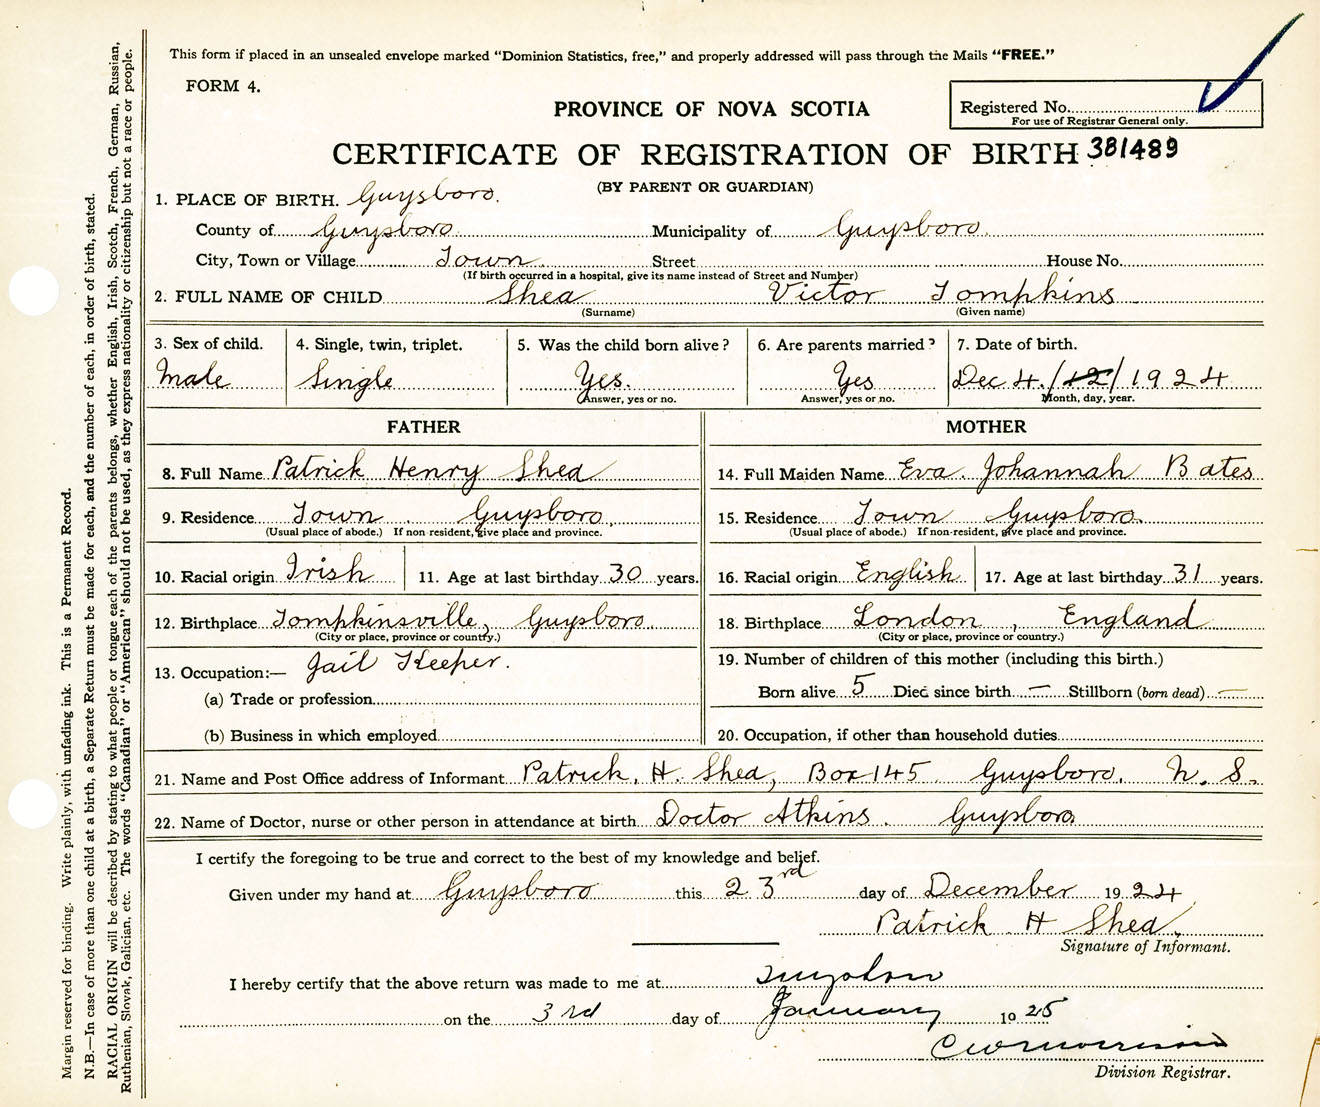 This form if placed in an unsealed envelope marked "Dominion Statistics, free," and properly addressed will pass through the Mails "FREE."
FORM 4.
Registered No.
For use of Registrar General only.
PROVINCE OF NOVA SCOTIA
CERTIFICATE OF REGISTRATION OF BIRTH 381489
(BY PARENT OR GUARDIAN)
1. PLACE OF BIRTH. Guysboro.
County of Guysboro Municipality of Guysboro
City, Town or Village Town Street House No.
(If birth occurred in a hospital, give its name instead of Street and Number)
2. FULL NAME OF CHILD Shea Victor Tompkins
(Surname) (Given name)
3. Sex of child. 4. Single, twin, triplet. 5. Was the child born alive? 6. Are parents married? 7. Date of birth.
Male Single Yes. Yes Dec 4./12/1924
Answer, yes or no. Answer, yes or no. Month, day, year.
FATHER MOTHER
8. Full Name Patrick Henry Shea 14. Full Maiden Name Eva Johannah Bates
9. Residence Town Guysboro. 15. Residence Town Guysboro.
(Usual place of abode.) If non-resident, give place and province. (Usual place of abode.) If non-resident, give place and province.
10. Racial origin Irish 11. Age at last birthday 30 years. 16. Racial origin English 17. Age at last birthday 31 years.
12. Birthplace Tompkinsville, Guysboro 18. Birthplace London, England
(City or place, province or country.) (City or place, province or country.)
13. Occupation:— Jail Keeper. 19. Number of children of this mother (including this birth.)
(a) Trade or profession Born alive 5 Died since birth — Stillborn (born dead) —
(b) Business in which employed 20. Occupation, if other than household duties
21. Name and Post Office address of Informant Patrick. H. Shea, Box 145 Guysboro. N. S.
22. Name of Doctor, nurse or other person in attendance at birth Doctor Atkins. Guysboro
I certify the foregoing to be true and correct to the best of my knowledge and belief.
Given under my hand at Guysboro this 23rd day of December 1924
Patrick H Shea,
Signature of Informant.
I hereby certify that the above return was made to me at Guysboro
on the 3rd day of January 1925
C W Morrison
Division Registrar.
Margin reserved for binding. Write plainly, with unfading ink. This is a Permanent Record.
N.B.—In case of more than one child at a birth, a Separate Return must be made for each, and the number of each, in order of birth, stated.
RACIAL ORIGIN will be described by stating to what people or tongue each of the parents belongs, whether English, Irish, Scotch, French, German, Russian,
Ruthenian, Slovak, Galician, etc. The words "Canadian" or "American" should not be used, as they express nationality or citizenship but not a race or people.